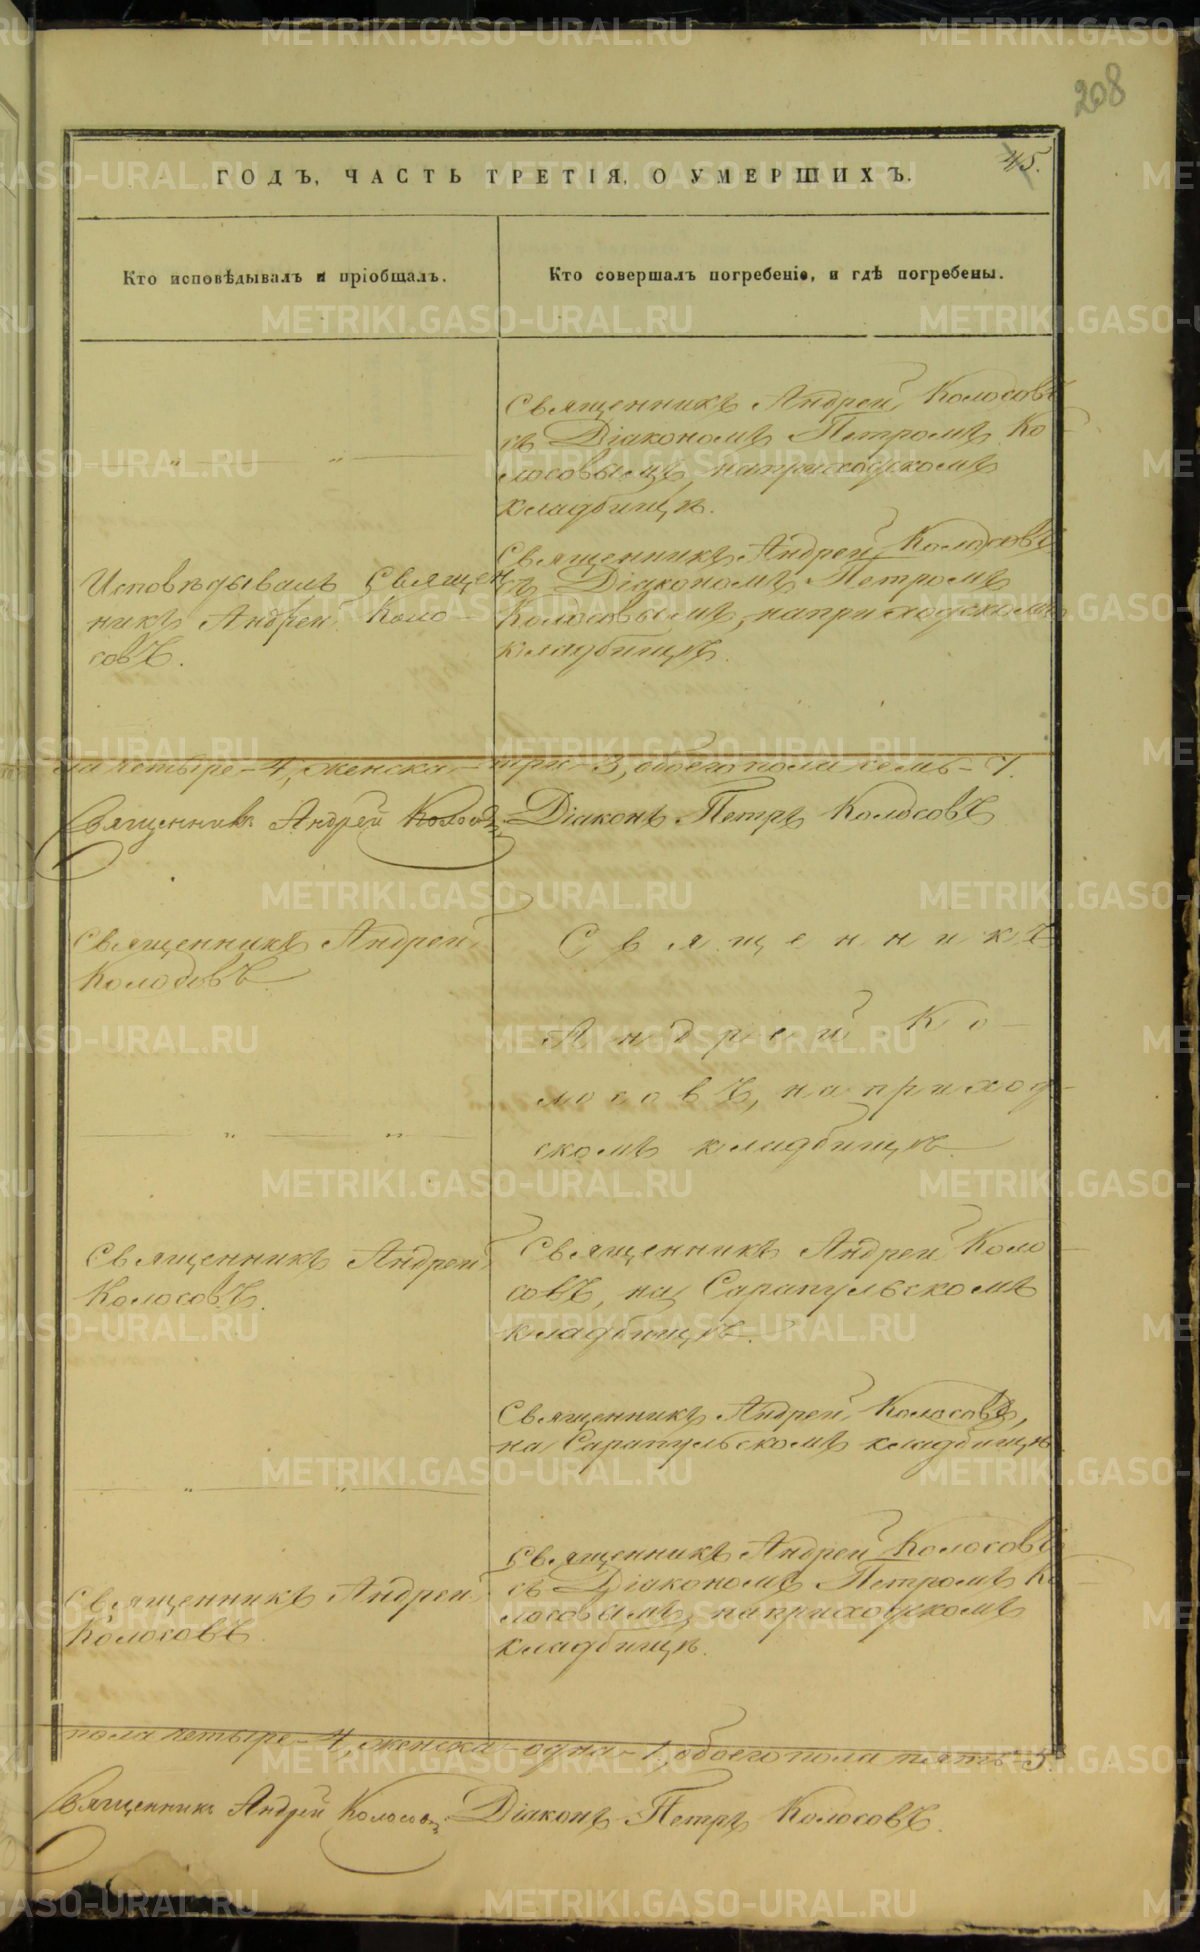 208
45.
ГОДЪ, ЧАСТЬ ТРЕТІЯ, О УМЕРШИХЪ.
Кто исповѣдывалъ и пріобщалъ.
Кто совершалъ погребеніе, и гдѣ погребены.
Священникъ Андрей Колосовъ
съ Діакономъ Петромъ Ко-
лосовымъ, на приходскомъ
кладбищѣ.
Исповѣдывалъ Священ
никъ Андрей Коло-
совъ.
Священникъ Андрей Колосовъ
съ Діакономъ Петромъ
Колосовымъ, на приходскомъ
кладбищѣ.
ла четыре - 4, женска - три - 3, обоего пола семь - 7.
Священникъ Андрей Колосовъ Діаконъ Петръ Колосовъ
Священникъ Андрей
Колосовъ
Священникъ
Андрей Ко-
лосовъ, на приход-
скомъ кладбищѣ.
Священникъ Андрей
Колосовъ.
Священникъ Андрей Коло-
совъ, на Сарапульскомъ
кладбищѣ.
Священникъ Андрей Колосовъ,
на Сарапульскомъ кладбищѣ
Священникъ Андрей
Колосовъ.
Священникъ Андрей Колосовъ
съ Діакономъ Петромъ Ко-
лосовымъ, на приходскомъ
кладбищѣ.
пола четыре - 4, женска - одна - 1, обоего пола пять - 5.
Священникъ Андрей Колосовъ Діаконъ Петръ Колосовъ.
METRIKI.GASO-URAL.RU